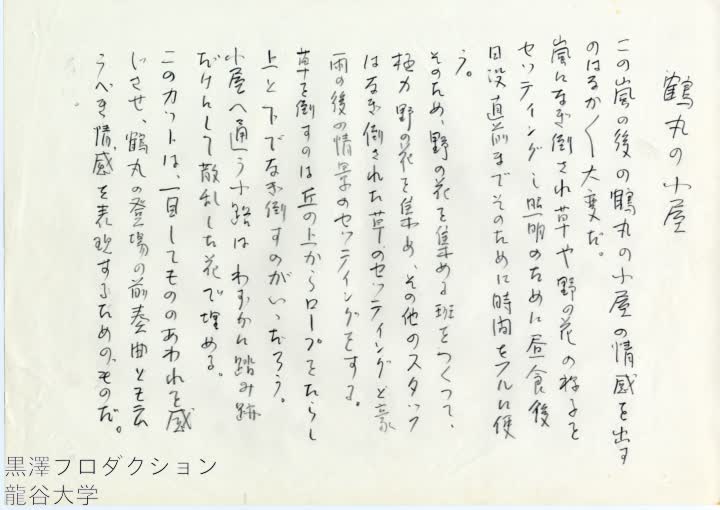 鶴丸の小屋
この嵐の後の鶴丸の小屋の情感を出す
のはなかなか大変だ。
嵐になぎ倒され草や野の花の様子を
セッティングし照明のために昼食後
日没直前までそのために時間をフルに使
う。
そのため、野の花を集める班をつくって、
極力野の花を集め、その他のスタッフ
はなぎ倒された草のセッティングと豪
雨の後の情景のセッティングをする。
草を倒すのは丘の上からロープをたらし
上と下でなぎ倒すのがいいだろう。
小屋へ通う小路はわずかに踏み跡
だけにして散乱した花で埋める。
このカットは、一目してもののあわれを感
じさせ、鶴丸の登場の前奏曲とも云
うべき情感を表現するためのものだ。
黒澤プロダクション
龍谷大学